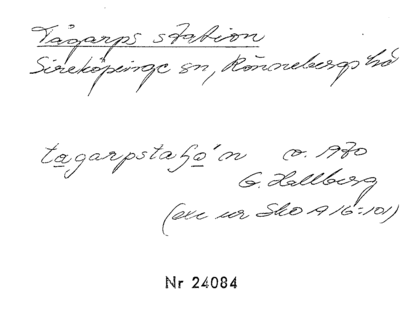 Tågarps station
Sireköpinge sn, Rönnebergs hd
tagarpstaʃo´n v. 1970
G. Hallberg
(exc ur Sko A 16:101)
Nr 24084